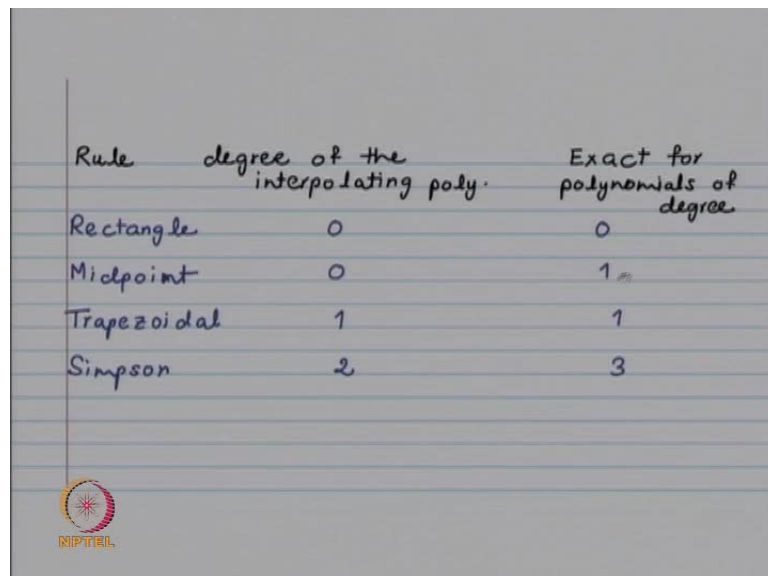 Rule degree of the Exact for
interpolating poly. polynomials of
degree
Rectangle 0 0
Midpoint 0 1
Trapezoidal 1 1
Simpson 2 3
NPTEL